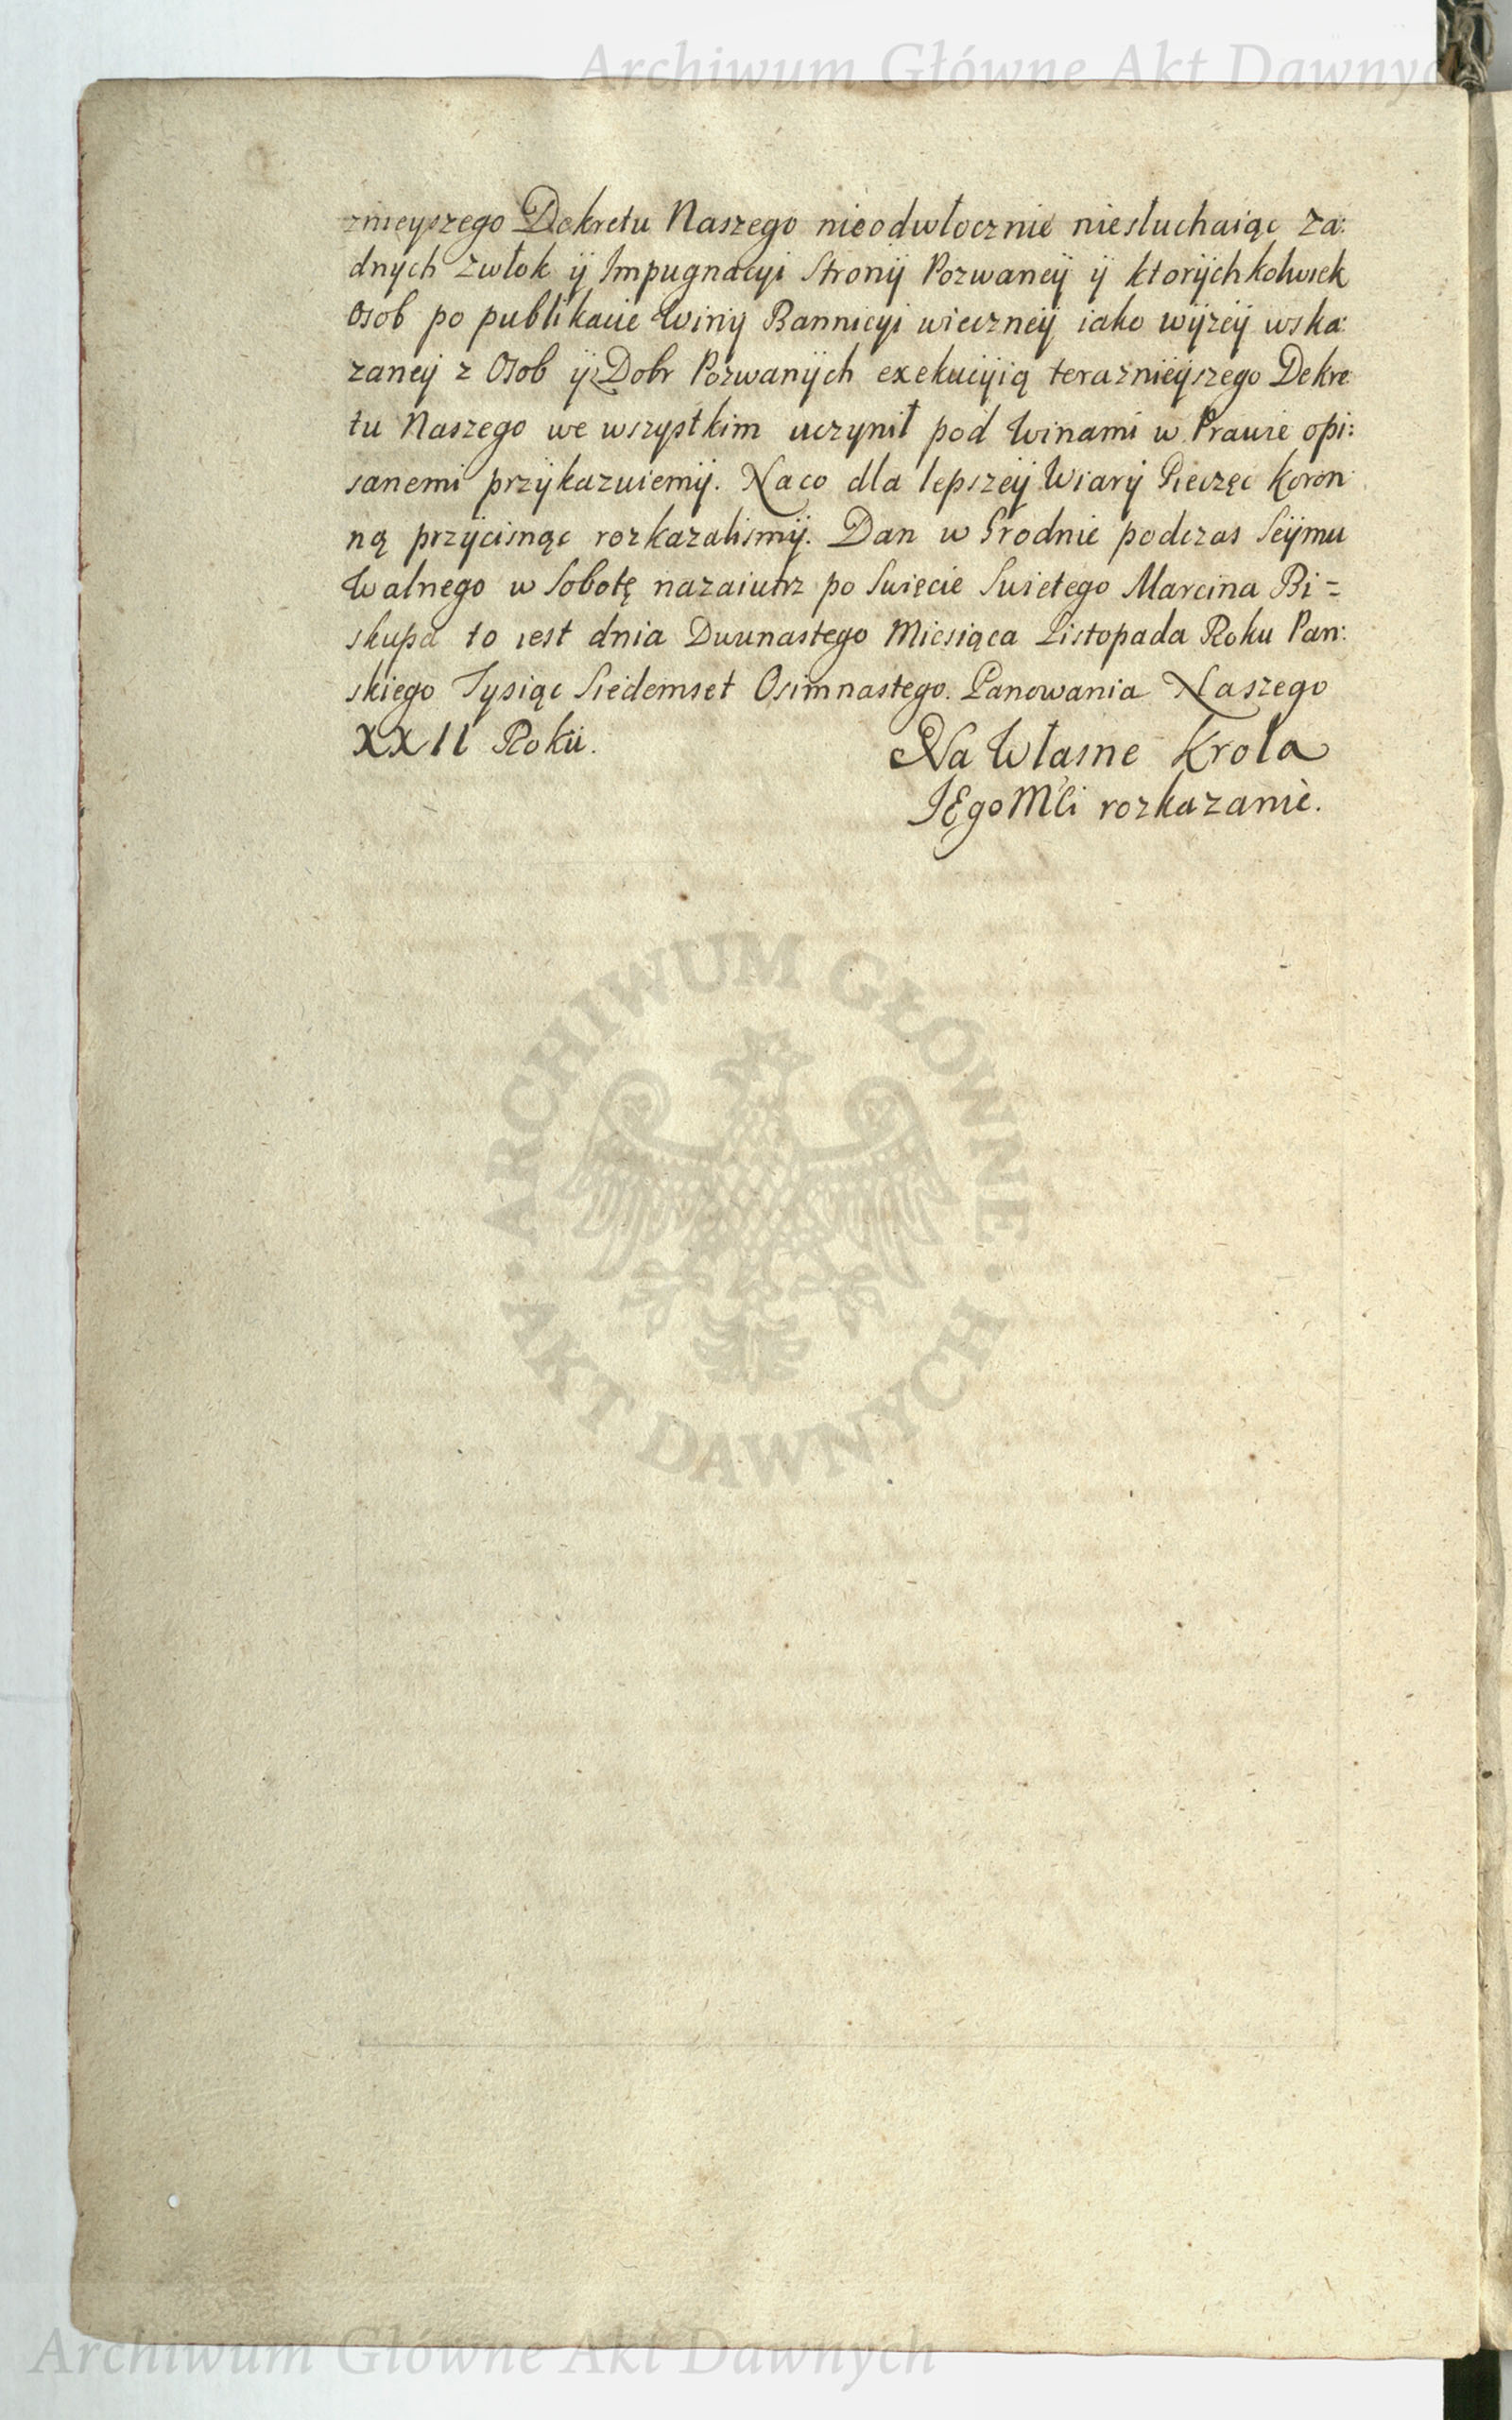 Archiwum Główne Akt Dawnyc
znieyszego Dekretu Naszego nieodwłocznie niesłuchaiąc za:
dnych zwłok ÿ Impugnacyi Stronÿ Pozwaneÿ ÿ ktorÿchkolwiek
Osob po publikacie Winÿ Bannicyi wieczneÿ iako wÿzeÿ wska:
zaneÿ z Osob ÿ z Dobr Pozwanÿch exekucÿią teraznieÿszego Dekre
tu Naszego we wszystkim uczynił pod Winami w Prawie opi:
sanemi przÿkazuiemÿ. Na co dla lepszeÿ Wiarÿ Pieczęc koron:
ną przÿcisnąc rozkazalismÿ. Dan w Grodnie podczas Seÿmu
Walnego w Sobotę nazaiutrz po Swięcie Swietego Marcina Bi=
skupa to iest dnia Dwunastego Miesiąca Listopada Roku Pan:
skiego Tysiąc Siedemset Osimnastego. Panowania Naszego
XXII Roku.
Na Własne Krola
IEgoMCi rozkazanie.
ARCHIWUM GŁÓWNE
· AKT DAWNYCH ·
Archiwum Główne Akt Dawnych